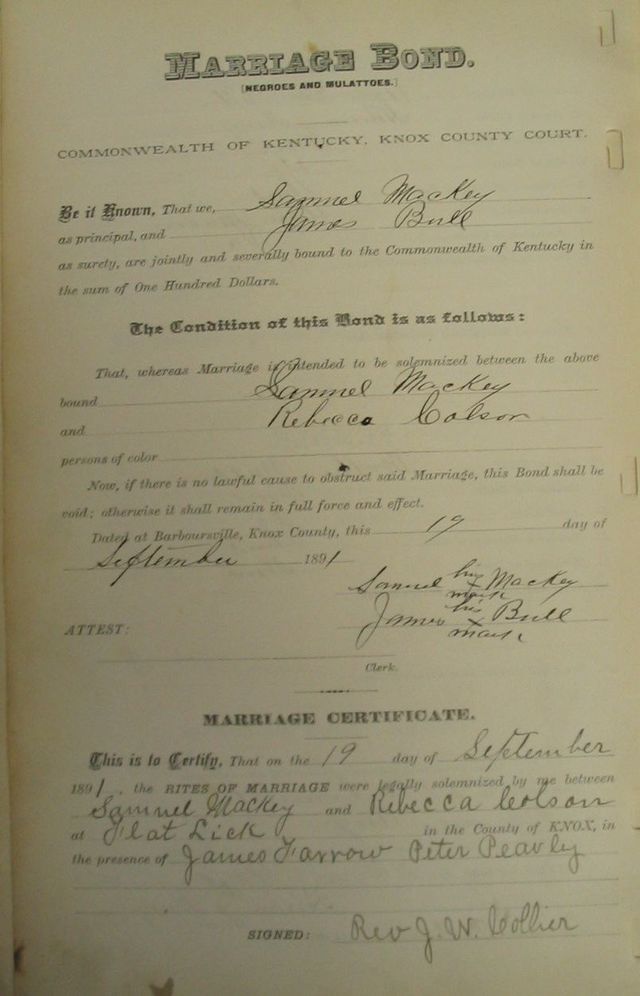 MARRIAGE BOND.
[NEGROES AND MULATTOES.]
COMMONWEALTH OF KENTUCKY, KNOX COUNTY COURT.
Be it Known, That we, Samuel Mackey
as principal, and James Bull
as surety, are jointly and severally bound to the Commonwealth of Kentucky in
the sum of One Hundred Dollars.
The Condition of this Bond is as follows:
That, whereas Marriage is intended to be solemnized between the above
bound Samuel Mackey
and Rebecca Colson
persons of color
Now, if there is no lawful cause to obstruct said Marriage, this Bond shall be
void; otherwise it shall remain in full force and effect.
Dated at Barboursville, Knox County, this 19 day of
September 1891
Samuel his x mark Mackey
James his x mark Bull
ATTEST:
Clerk.
MARRIAGE CERTIFICATE.
This is to Certify, That on the 19 day of September
1891, the RITES OF MARRIAGE were legally solemnized by me between
Samuel Mackey and Rebecca Colson
at Flat Lick in the County of KNOX, in
the presence of James Farrow Peter Peavley
SIGNED: Rev J. W. Collier